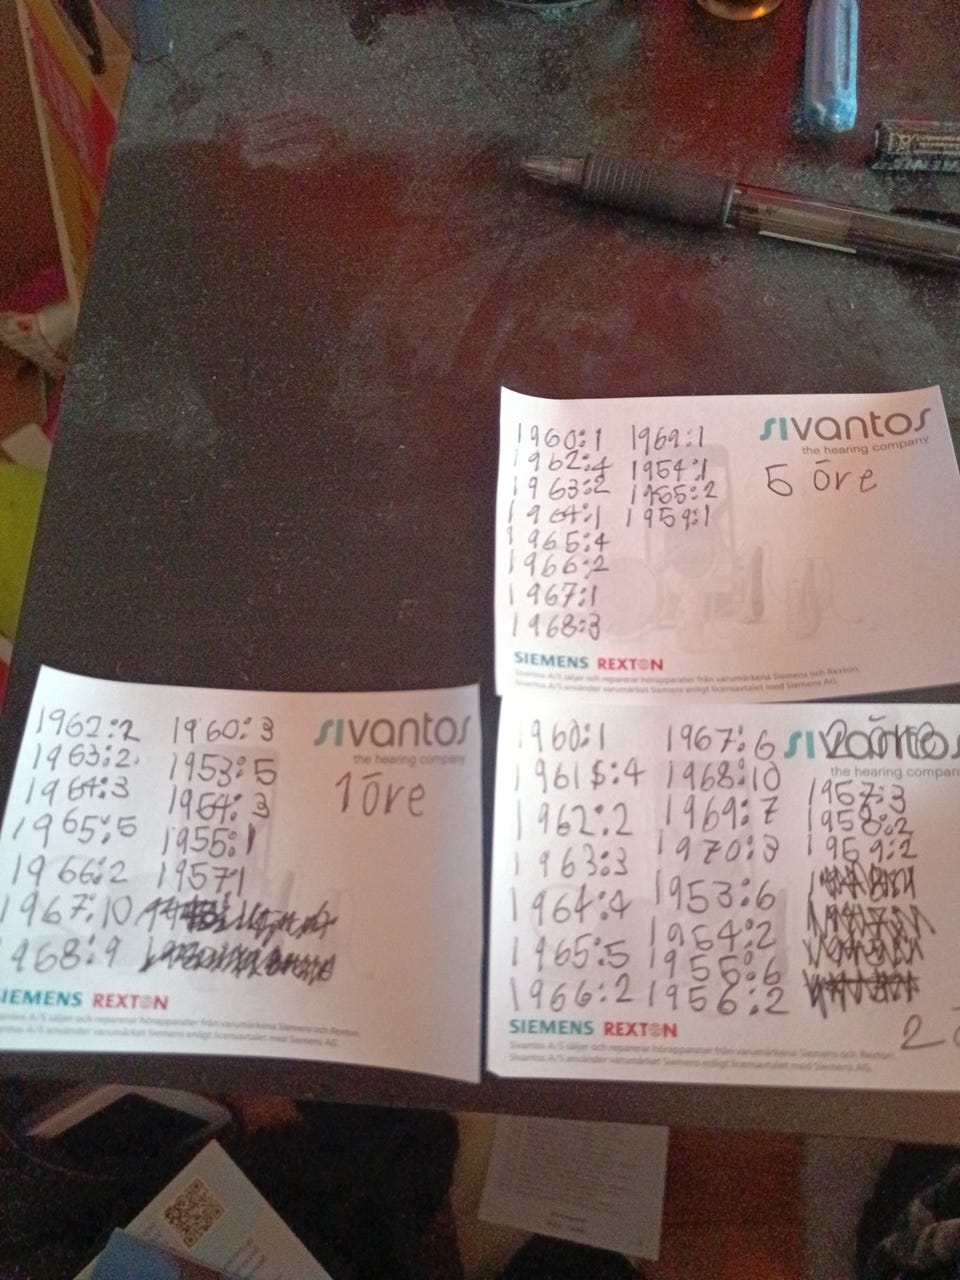 1960:1 1969:1
1962:4 1954:1
1963:2 1955:2
1964:1 1959:1
1965:4
1966:2
1967:1
1968:3
sivantos
the hearing company
5 öre
SIEMENS REXTON
Sivantos A/S säljer och reparerar hörapparater från varumärkena Siemens och Rexton.
Sivantos A/S använder varumärket Siemens enligt licensavtalet med Siemens AG.
1962:2 1960:3
1963:2 1953:5
1964:3 1954:3
1965:5 1955:1
1966:2 1957:1
1967:10
968:9
sivantos
the hearing company
1 öre
SIEMENS REXTON
Sivantos A/S säljer och reparerar hörapparater från varumärkena Siemens och Rexton.
Sivantos A/S använder varumärket Siemens enligt licensavtalet med Siemens AG.
1960:1 1967:6
1961:4 1968:10 1957:3
1962:2 1969:7 1958:2
1963:3 1970:3 1959:2
1964:4 1953:6
1965:5 1954:2
1966:2 1955:6
1956:2
sivantos
the hearing company
2 öre
SIEMENS REXTON
Sivantos A/S säljer och reparerar hörapparater från varumärkena Siemens och Rexton.
Sivantos A/S använder varumärket Siemens enligt licensavtalet med Siemens AG.
2 ö